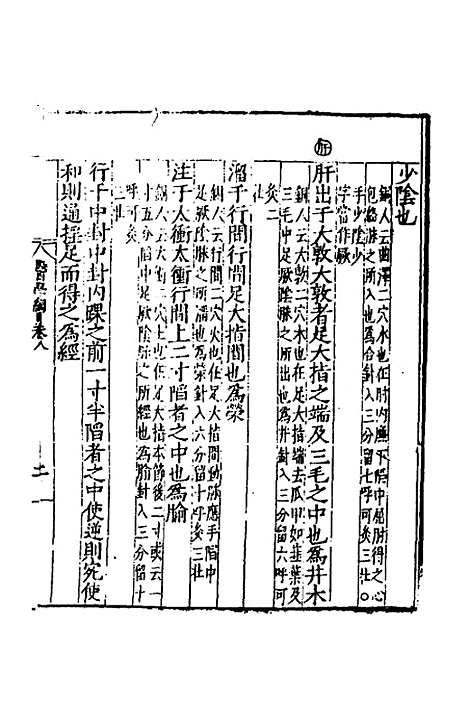 少陰也
銅人云曲澤二穴水也在肘內廉下陷中屈肘得之心
包絡脉之所入也為合針入三分留七呼可灸三壯○
手少陰少
字當作厥
肝
肝出于大敦大敦者足大指之端及三毛之中也為井木
銅人云大敦二穴木也在足大指端去爪甲如韭葉及
三毛中足厥陰脉之所出也為井針入三分留六呼可
灸三
壯
溜于行間行間足大指間也為滎
銅人云行間二穴火也在足大指間動脉應手陷中
足厥陰脉之所溜也為滎針入六分留十呼灸三壯
注于太衝太衝行間上二寸陷者之中也為腧
銅人云太衝二穴土也在足大指本節後二寸或云一
寸五分陷中足厥陰脉之所經也為腧針入三分留十
呼可灸
三壯
行于中封中封內踝之前一寸半陷者之中使逆則宛使
和則通搖足而得之為經
醫學綱目卷八